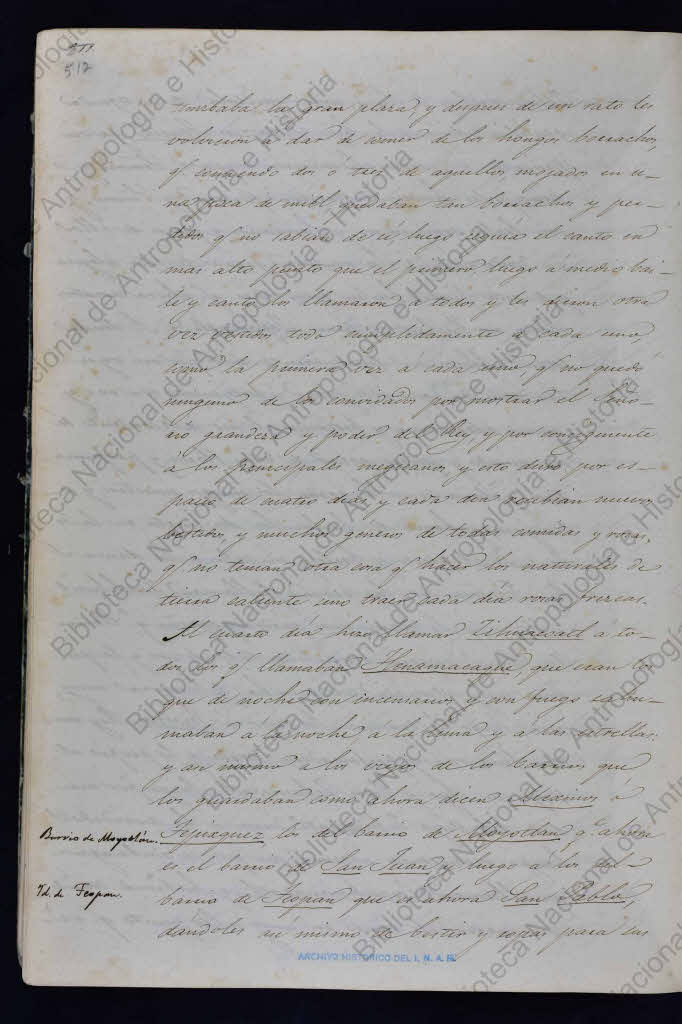 511
512
tumbaba la gran plaza, y despues de un rato les
volvieron a dar de comer de los hongos borrachos,
q̃ comiendo dos ó tres de aquellos mojados en u-
na poca de mihl quedaban tan borrachos y per-
didos q̃ no sabian de si, luego seguia el canto en
mas alto punto que el primero, luego á medio bai-
le y canto, los llamaron a todos y les dieron otra
vez vestidos todo cumplidamente a cada uno,
como la primera vez á cada uno, q̃ no quedo
ninguno de los convidados por mostrar el Seño-
rio grandeza y poder del Rey, y por consiguiente
á los principales megicanos, y esto duro por es-
pacio de cuatro dias, y cada dia recibian nuevos
bestidos, y muchos generos de todas comidas y rosas,
q̃ no tenian otra cosa q̃ hacer los naturales de
tierra caliente sino traer cada día rosas frezcas.
Al cuarto día hizo llamar Zihuacoatl a to-
dos los q̃ llamaban Tlenamacaque, que eran los
que de noche con incensarios y con fuego sahu-
maban á la noche á la luna y á las estrellas:
y asi mismo a los viejos de los barrios que
los guardaban como ahora dicen Merinos ó
Tepixquez los del barrio de Moyotlan, q.e ahora
es el barrio de San Juan, y luego á los del
barrio de Teopan que es ahora San Pablo,
dándoles asi mismo de bestir y rosas para sus
Barrio de Moyotlán.
Yd. de Teopan.
ARCHIVO HISTORICO DEL I. N. A. H.
Biblioteca Nacional de Antropología e Historia